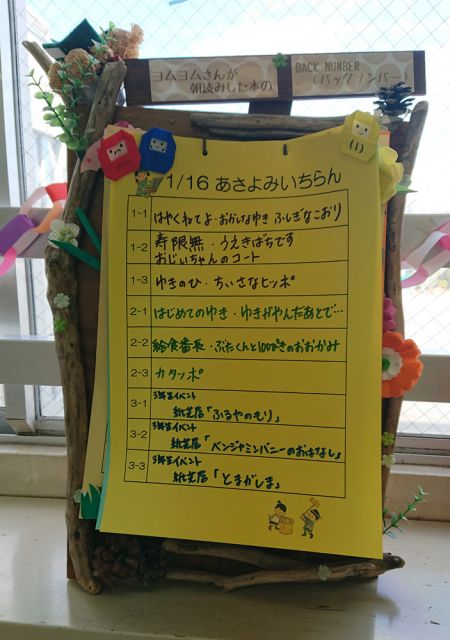 ヨムヨムさんが
朝読みした本の
BACK NUMBER
(バックナンバー)
1/16 あさよみいちらん
1-1 はやくねてよ・おかしなゆき ふしぎなこおり
1-2 寿限無・うえきばちです
おじいちゃんのコート
1-3 ゆきのひ・ちいさなヒッポ
2-1 はじめてのゆき・ゆきがやんだあとで…
2-2 給食番長・ぶたくんと100ぴきのおおかみ
2-3 カタッポ
3-1 3年生イベント
紙芝居「ふるやのもり」
3-2 3年生イベント
紙芝居「ベンジャミンバニーのおはなし」
3-3 3年生イベント
紙芝居「たきがしま」